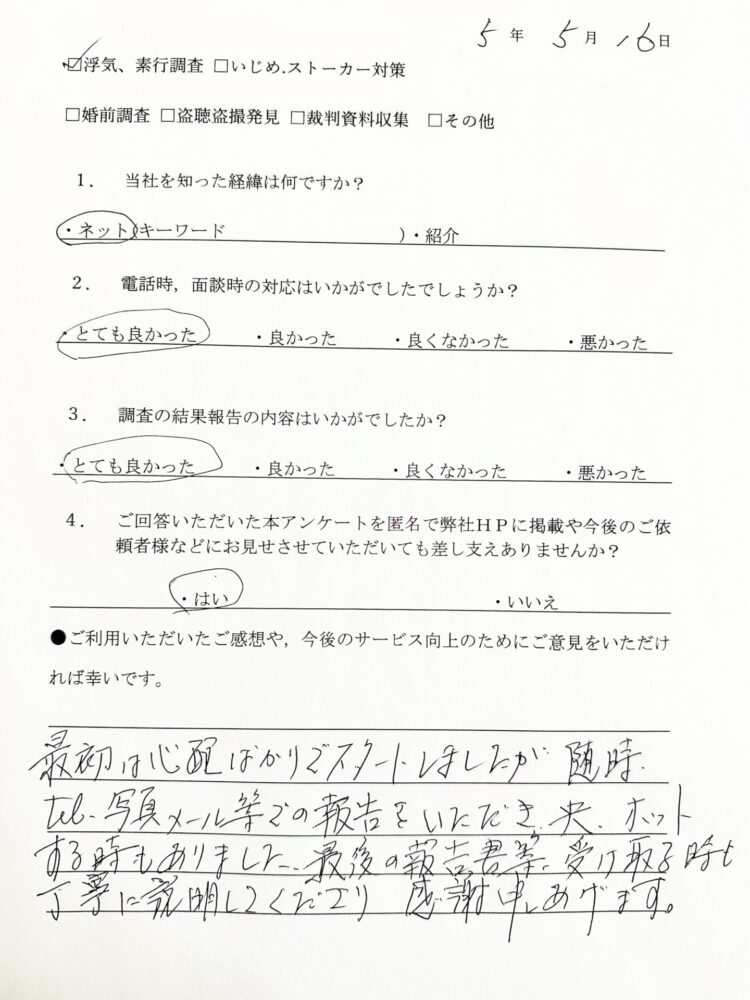 5年 5月 16日
☑浮気、素行調査 □いじめ.ストーカー対策
□婚前調査 □盗聴盗撮発見 □裁判資料収集 □その他
1. 当社を知った経緯は何ですか？
・ネット(キーワード )・紹介
2. 電話時，面談時の対応はいかがでしたでしょうか？
・とても良かった ・良かった ・良くなかった ・悪かった
3. 調査の結果報告の内容はいかがでしたか？
・とても良かった ・良かった ・良くなかった ・悪かった
4. ご回答いただいた本アンケートを匿名で弊社ＨＰに掲載や今後のご依
頼者様などにお見せさせていただいても差し支えありませんか？
・はい ・いいえ
●ご利用いただいたご感想や，今後のサービス向上のためにご意見をいただけ
れば幸いです。
最初は心配ばかりでスタートしましたが 随時、
tel、写真メール等での報告をいただき、 ホット
する時もありました、最後の報告書等、受け取る時も
丁寧に説明してくださり 感謝申しあげます。